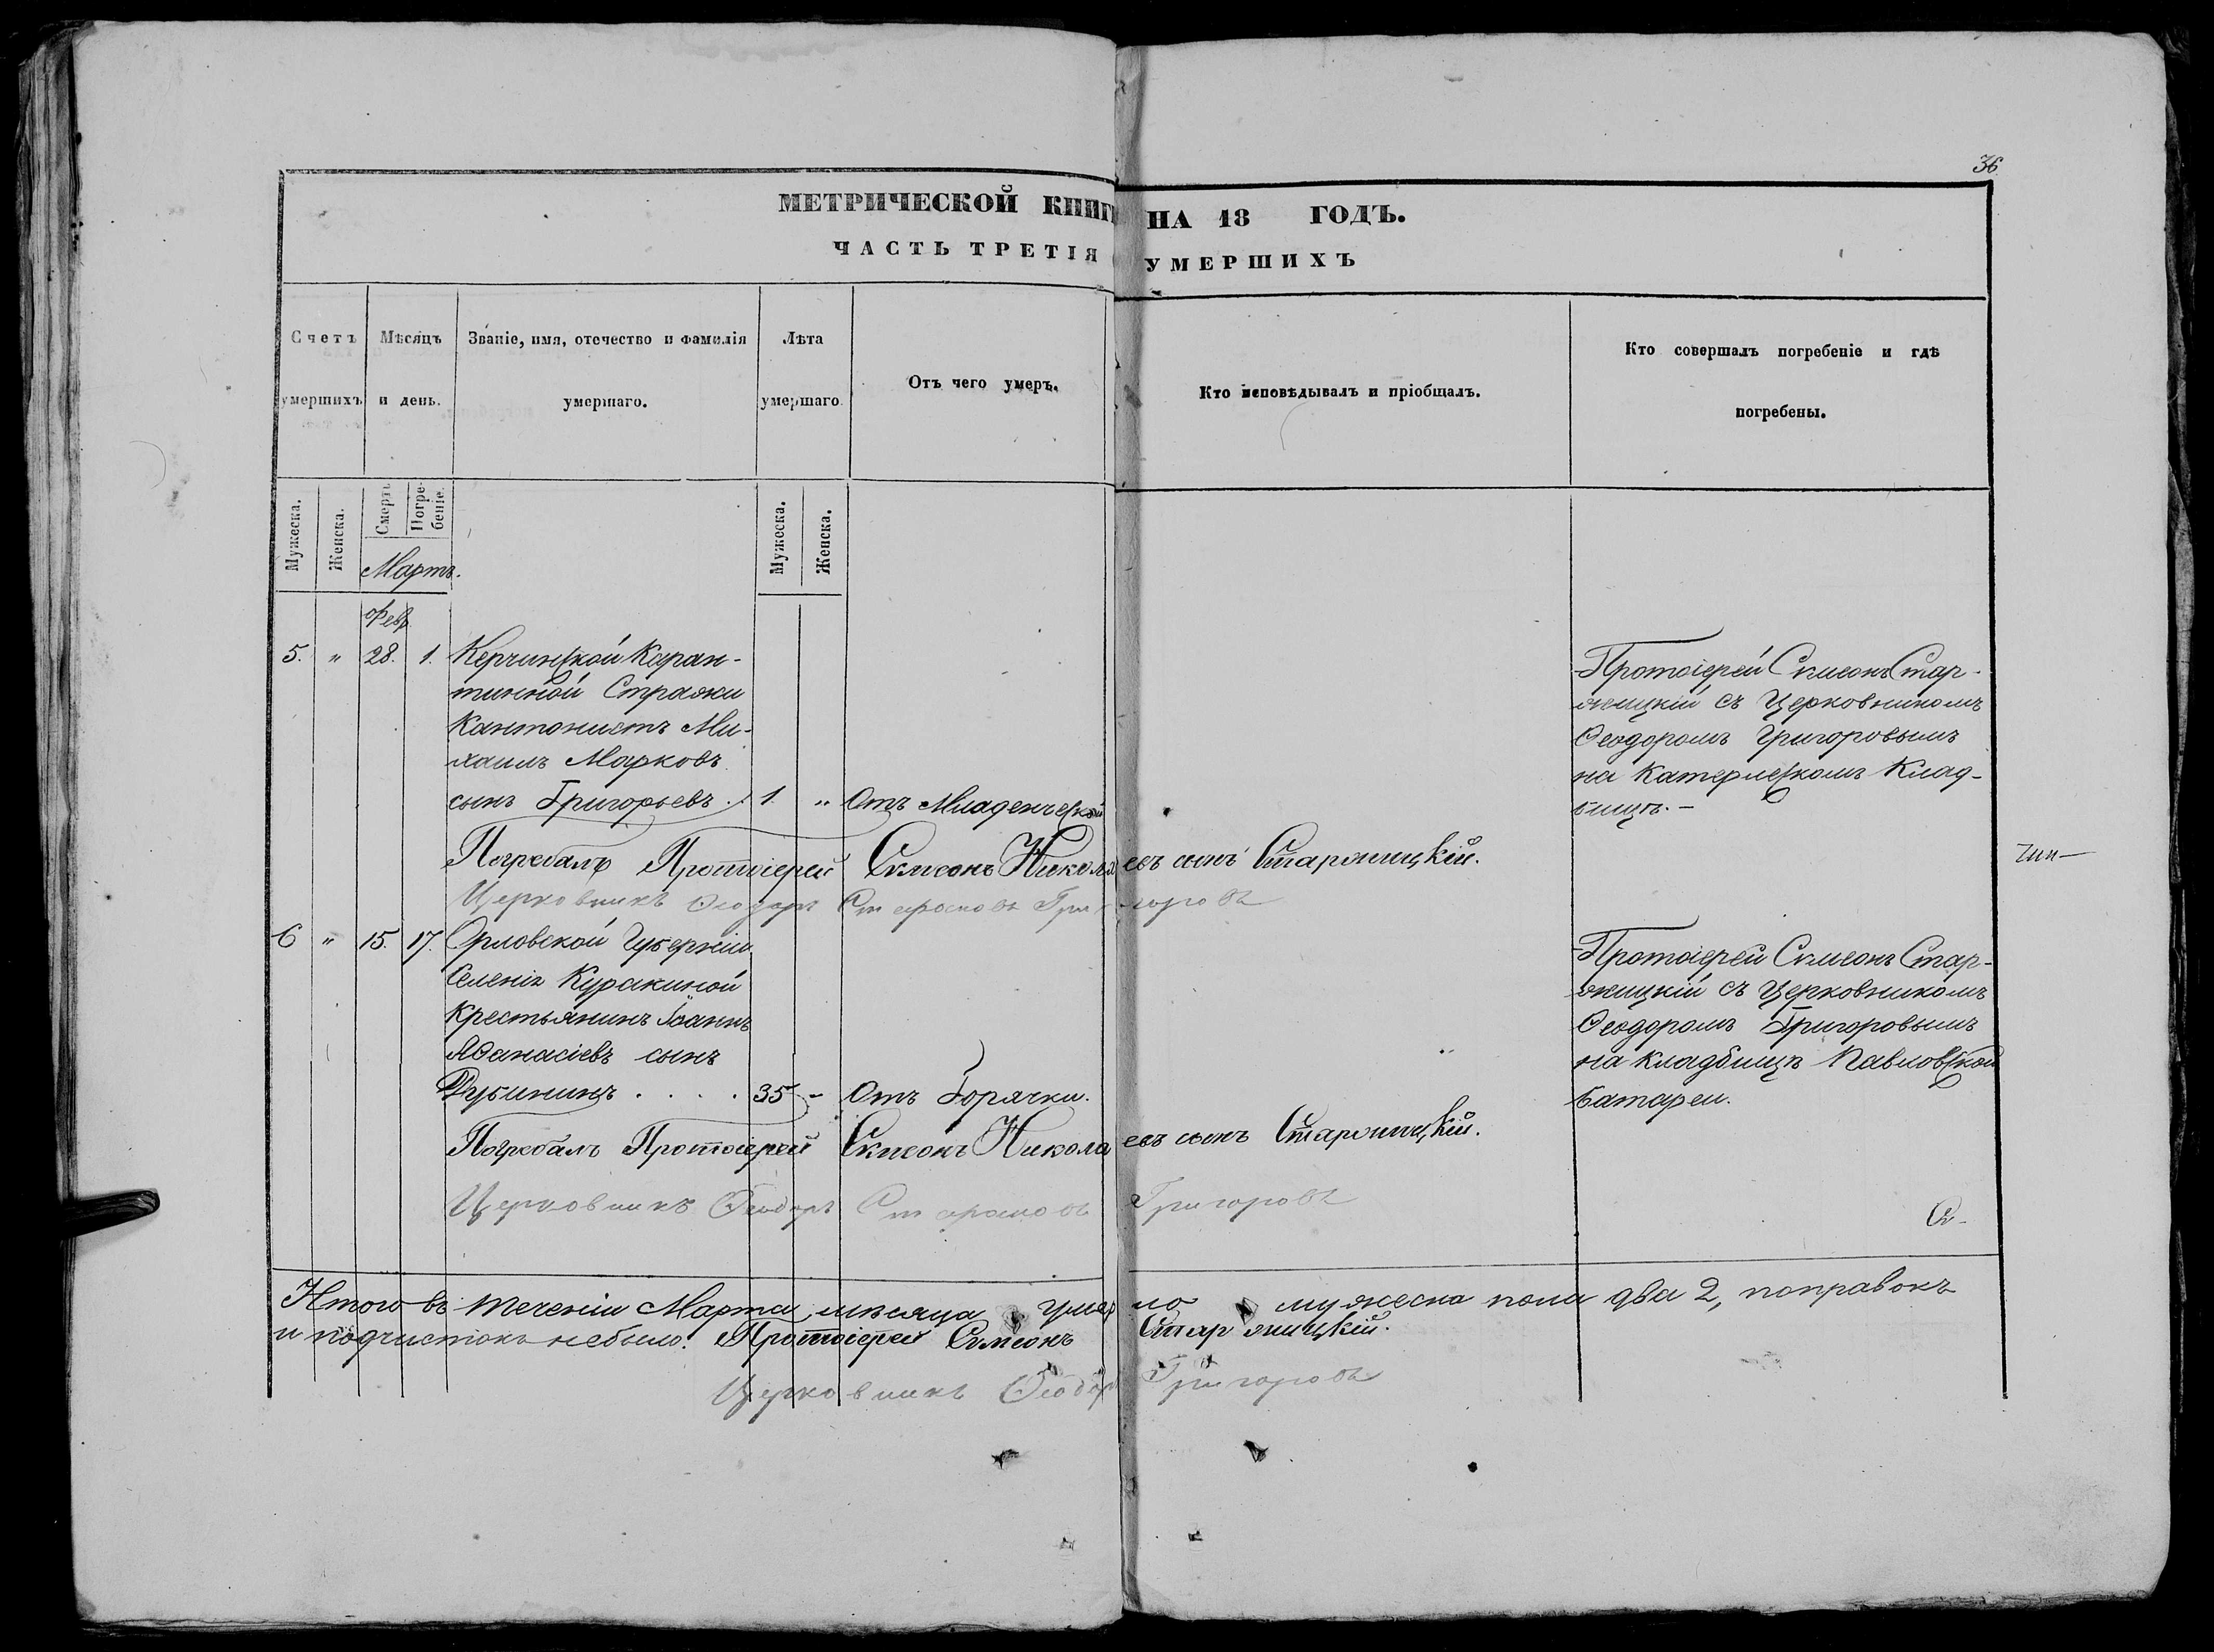 36
МЕТРИЧЕСКОЙ КНИГИ НА 18 ГОДЪ.
ЧАСТЬ ТРЕТІЯ УМЕРШИХЪ
Счетъ умершихъ
Мѣсяцъ и день.
Званіе, имя, отечество и фамилія умершаго.
Лѣта умершаго
Отъ чего умеръ.
Кто исповѣдывалъ и пріобщалъ.
Кто совершалъ погребеніе и гдѣ погребены.
Мужеска.
Женска.
Смерть
Погребеніе.
Мартъ.
Мужеска.
Женска.
Февр
5. " 28. 1. Керчинской Каран-
тинной Стражи
Кантонистъ Ми-
хаилъ Марковъ
сынъ Григорьевъ . 1. " Отъ Младенческой
Протоіерей Симеонъ Стар-
жицкій съ Церковникомъ
Ѳеодоромъ Григоровымъ
на Катерлескомъ Клад-
бищѣ. –
Погребалъ Протоіерей Симеонъ Николаевъ сынъ Старжицкій.
Церковникъ Ѳеодоръ Григоровъ
6 " 15. 17. Орловской Губерніи
Селенія Куракиной
Крестьянинъ Іоаннъ
Аѳанасіевъ сынъ
Дубининъ . . . . 35 – Отъ Горячки.
Протоіерей Симеонъ Стар-
жицкій съ Церковникомъ
Ѳеодоромъ Григоровымъ
на кладбищѣ Павловской
батареи.
Погребалъ Протоіерей Симеонъ Николаевъ сынъ Старжицкій.
Церковникъ Ѳеодоръ Григоровъ
Итого въ теченіи Марта мѣсяца умерло мужеска пола два 2, поправокъ
и подчистокъ небыло. Протоіерей Симеонъ Старжицкій.
Церковникъ Ѳеодоръ Григоровъ